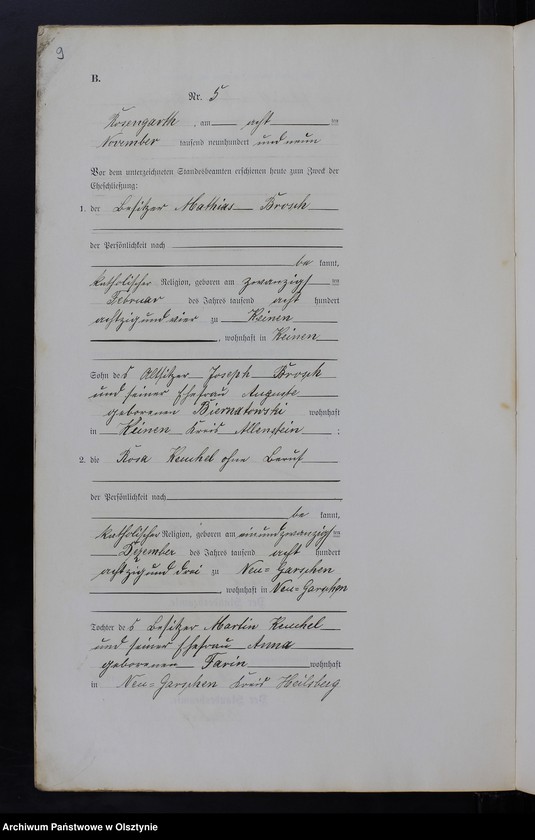 9
B.
Nr. 5
Rosengarth, am acht ten
November tausend neunhundert und neun
Vor dem unterzeichneten Standesbeamten erschienen heute zum Zweck der
Eheschließung:
1. der Besitzer Mathias Brosch
der Persönlichkeit nach
be kannt,
katholischer Religion, geboren am zwanzigsten
Februar des Jahres tausend acht hundert
achtzig und vier zu Keinen
, wohnhaft in Keinen
Sohn des Altsitzer Joseph Brosch
und seiner Ehefrau Auguste
geborenen Biernatowski wohnhaft
in Keinen Kreis Allenstein ;
2. die Rosa ohne Beruf
der Persönlichkeit nach
be kannt,
katholischer Religion, geboren am einundzwanzigsten
Dezember des Jahres tausend acht hundert
achtzig und drei zu Neu=Garschen
, wohnhaft in Neu=Garschen
Tochter des Besitzer Martin
und seiner Ehefrau Anna
geborenen Farin wohnhaft
in Neu=Garschen Kreis Heilsberg
Archiwum Państwowe w Olsztynie